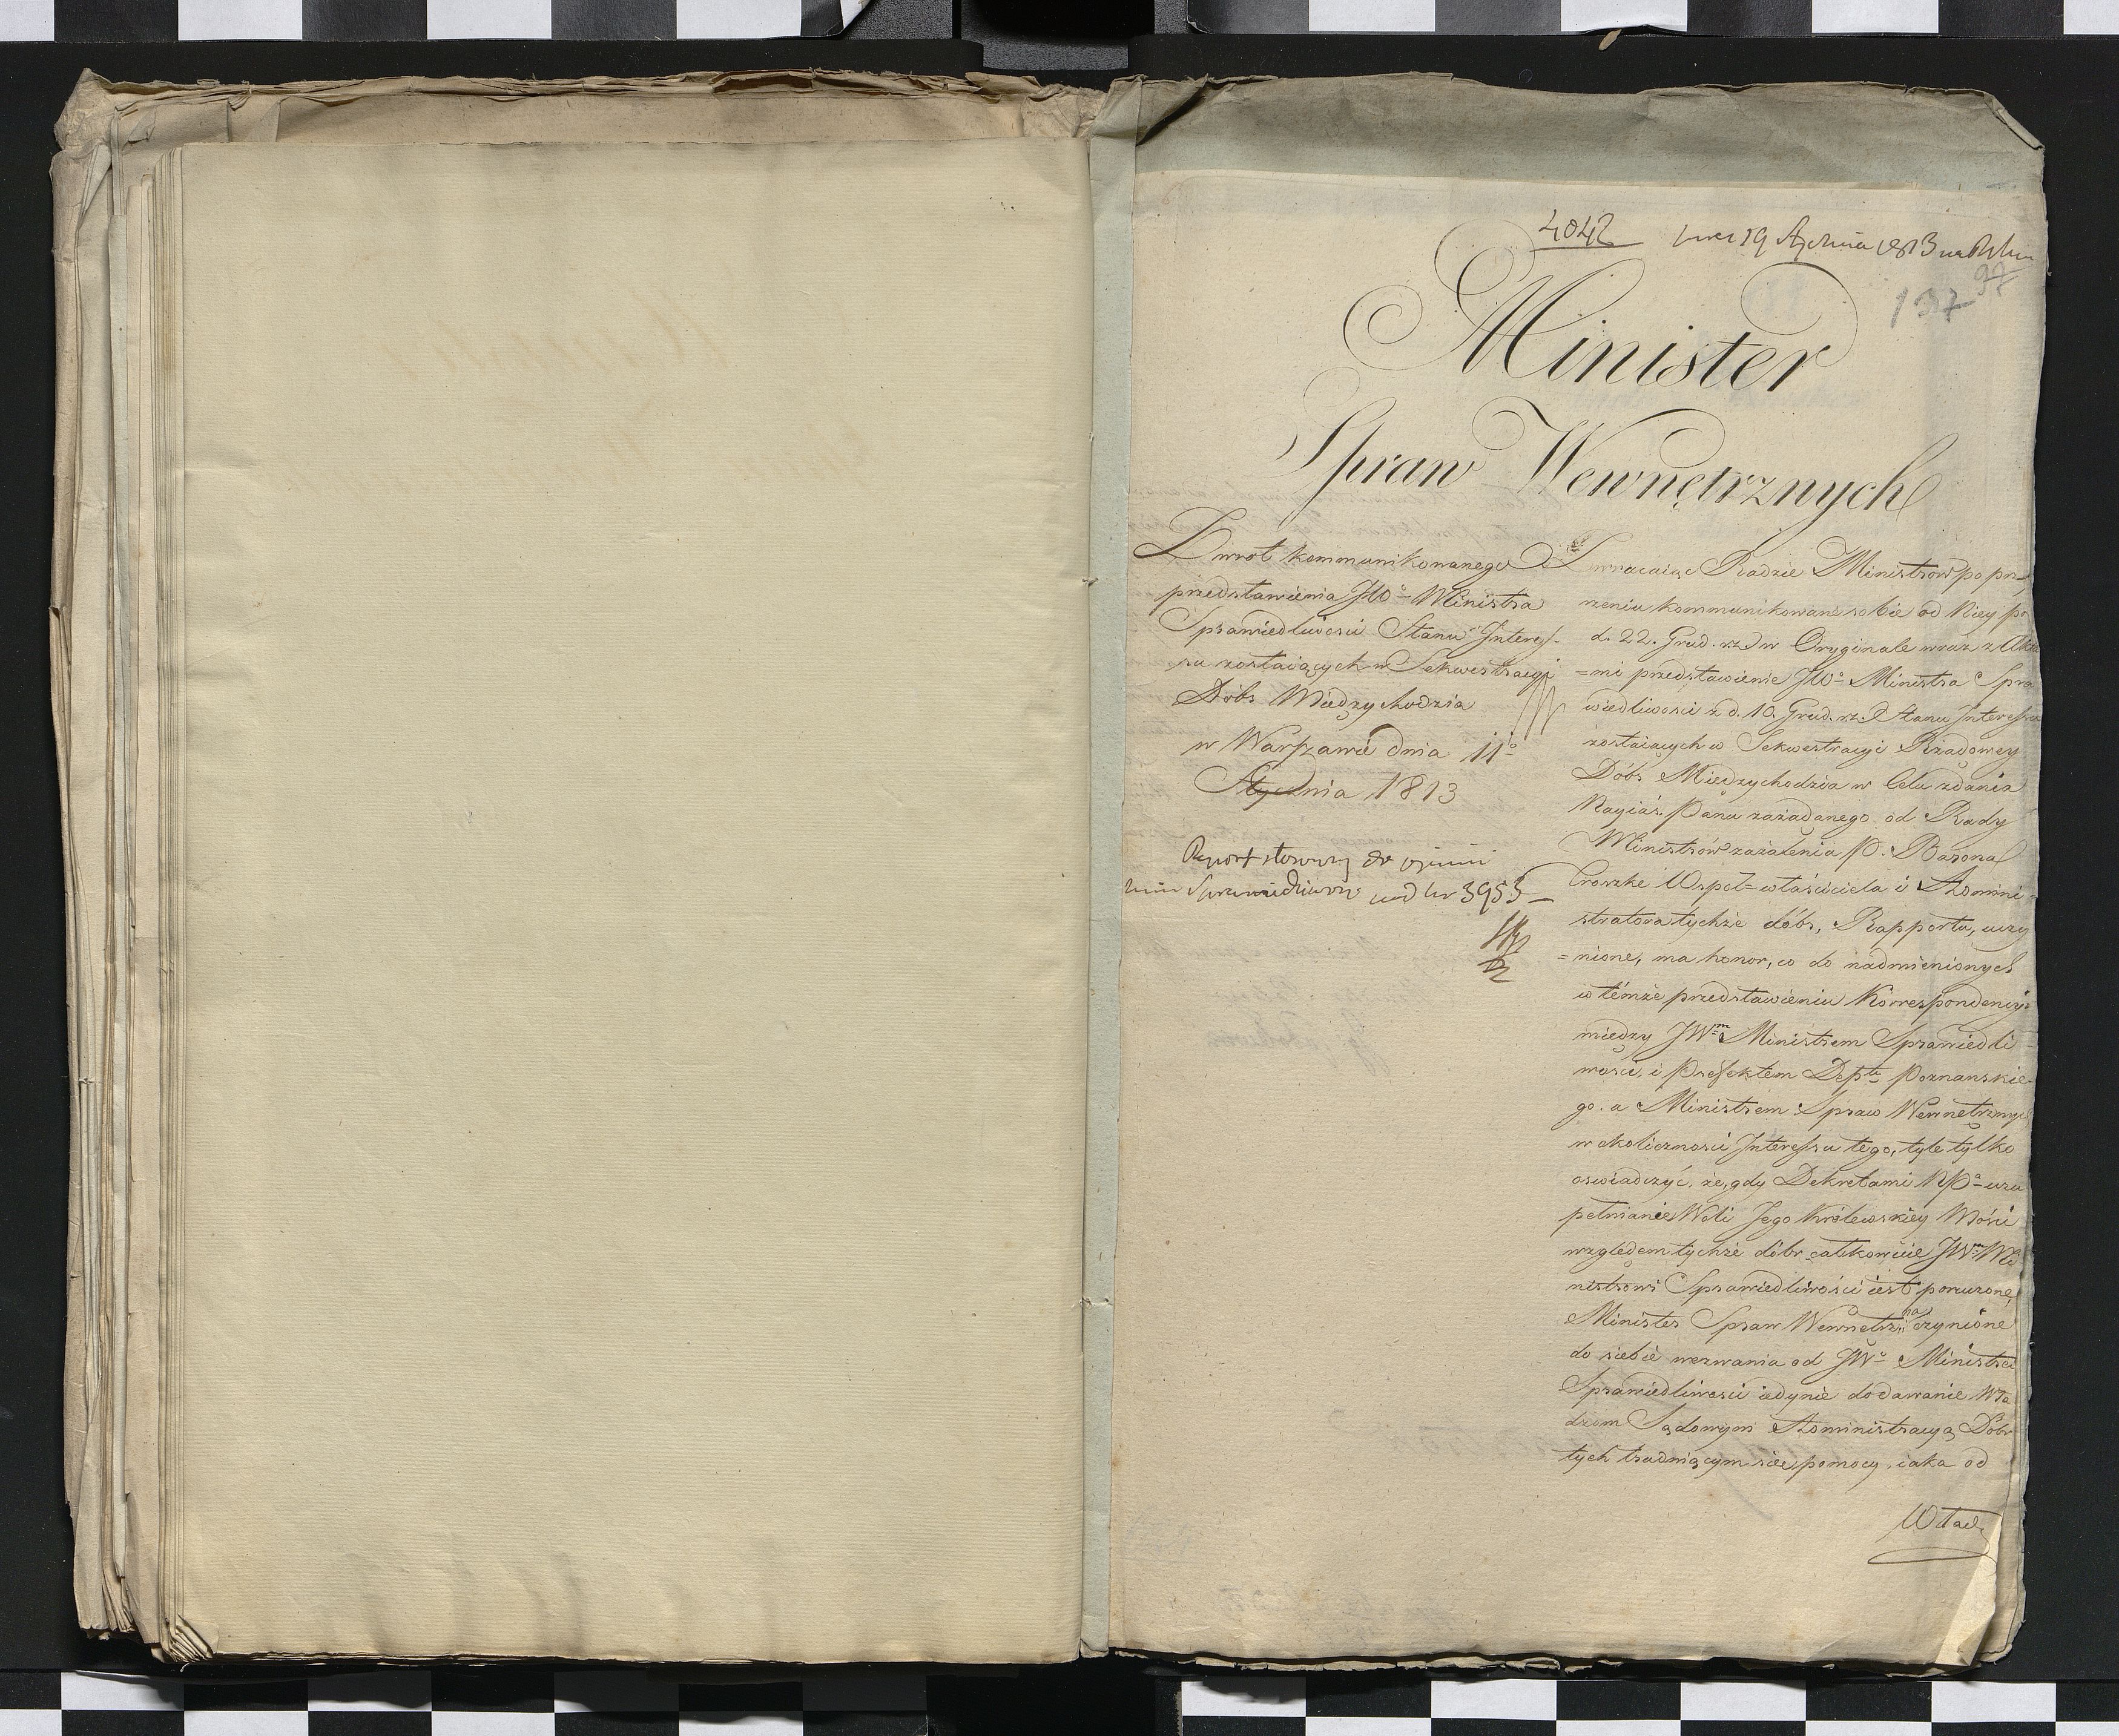 4042
19 Stycznia 1813
97
137
Minister
Spraw Wewnętrznych
Zwrot kommunikowanego
przedstawienia JWo Ministra
Sprawiedliwosci Stanu Interes-
su zostaiących w Sekwestracyi
Dóbr Międzychodzia
w Warszawie dnia 11o
Stycznia 1813
Raport stosowny do opinii
Sprawiedliwości pod Nr 3953
Zwracaiąc Radzie Ministrów po
rzeniu kommunikowane sobie od Niey
d. 22. Grud. r. z. w Oryginale wraz z Akta
=mi przedstawienie JWo Ministra Spra
wiedliwosci z d. 10. Grud. r. z. Stanu Interessu
zostaiących w Sekwestracyi Rządowey
Dóbr Międzychodzia w Celu zdania
Nayiaś. Panu zażądanego od Rady
Ministrów zażalenia P. Barona
Troszke Współ=właściciela i Admini
stratora tychże dóbr, Rapportu, uczy
=nione, ma honor, co do nadmienionych
w témże przedstawieniu Korrespondencyi
między JWm Ministrem Sprawiedli
wosci, i Prefektem Deptu Poznanskie-
go. a Ministrem Spraw Wewnętrznych
w okoliczności Interessu tego, tyle tylko
oswiadczyć, że, gdy Dekretami NPa uzu
pełnianie Woli Jego Królewskiey Mości
względem tychże dóbr całkowicie JWm Mi
nistrowi Sprawiedliwości iest poruczone,
Minister Spraw Wewnętrz: na czynione
do siebie wezwania od JWo Ministra
Sprawiedliwosci iedynie dodawanie Wła
dzom Sądowym Administracyą Dóbr
tych trudniącym się, pomocy, iaka od
Wład